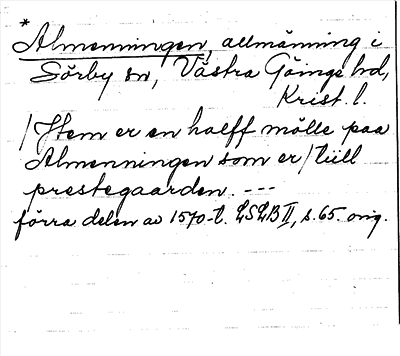 *
Almenningen, allmänning i
Sörby sn, Västra Göinge hd,
Krist. l.
/Item er en halff mölle paa
Almenningen som er/ till
prestegaarden. ---
förra delen av 1570-t. LSLB II, s. 65. orig.